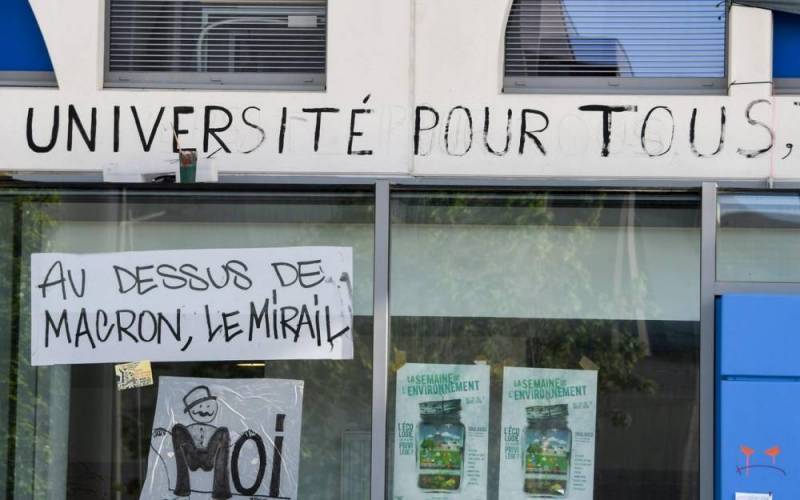 UNIVERSITÉ POUR TOUS,
AU DESSUS DE
MACRON, LE MIRAIL
MOi
LA SEMAINE DE
L'ENVIRONNEMENT
L'ÉCO
LOGIE
PRIVI
LÈGE ?
LA SEMAINE DE
L'ENVIRONNEMENT
L'ÉCO
LOGIE
PRIVI
LÈGE ?